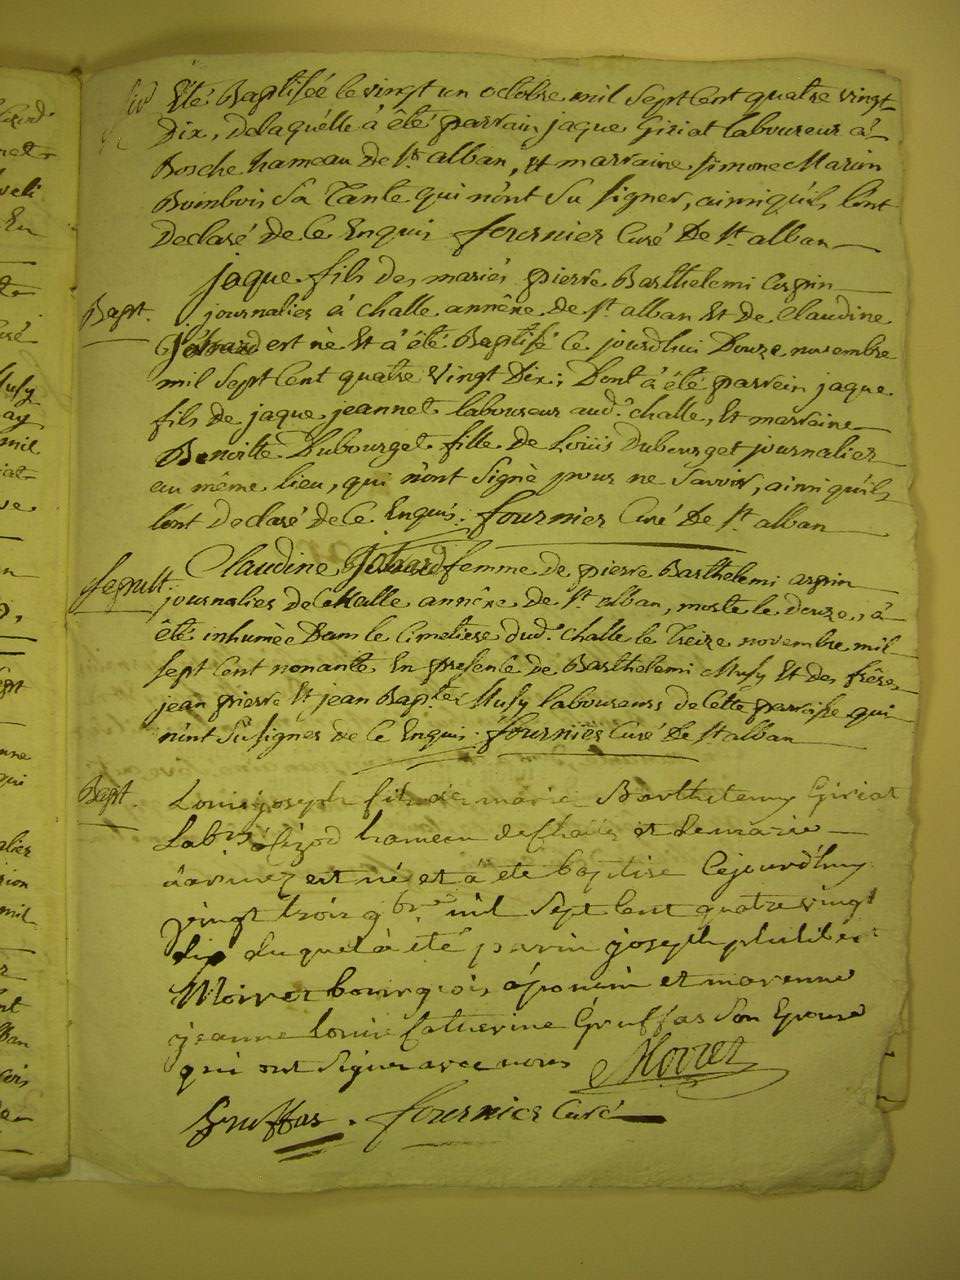 Eté Baptisée le vingt un octobre mil Sept Cent quatre vingt
Dix, de laquelle à été parrain jaque Giriat laboureur à
Bosche hameau de St alban, et marraine Simone Marin
Bombois Sa Tante qui n'ont Su Signer, ainsi qu'ils l'ont
Declaré de Ce Enquis fournier Curé De St alban
Bapt.
jaque fils des mariés pierre Barthelemi arpin
journalier à challe annexe de St alban Et de Claudine
est nè Et à été Baptisé Ce jourd'hui Douze novembre
mil Sept Cent quatre Vingt Dix; Dont à été parrein jaque
fils de jaque jeannet laboureur aud.t challe, Et marraine
Benoitte Dubourget fille de Loüis Dubourget journalier
au même lieu, qui n'ont Signé pour ne Savoir, ainsi qu'ils
l'ont Declaré de Ce Enquis. fournier Curé De St alban
Sepult.
Claudine femme de pierre Barthelemi arpin
journalier de Challe annexe de St alban, morte le douze, à
été inhumèe Dans le Cimetiere dud.t challe le Treize novembre mil
Sept Cent nonante En presence de Barthelemi Musy Et des frères
jean pierre Et jean Bap.te Musy laboureurs de Cette parroisse qui
n'ont Su Signer de Ce Enquis. fournier Curé De St alban
Bapt.
Louis joseph fils de marié Barthelemy Giriat
Lab.r à hameau de Challes et de marie
est né et à été baptisé Cejourd'huy
vingt trois 9bre mil Sept Cent quatre vingt
dix duquel à été parin joseph philibert
Moiret bourgeois à poncin et marenne
jeanne Louise Catherine Gruffas Son Epouse
qui ont Signer avec nous Moiret
Gruffas. fournier Curé